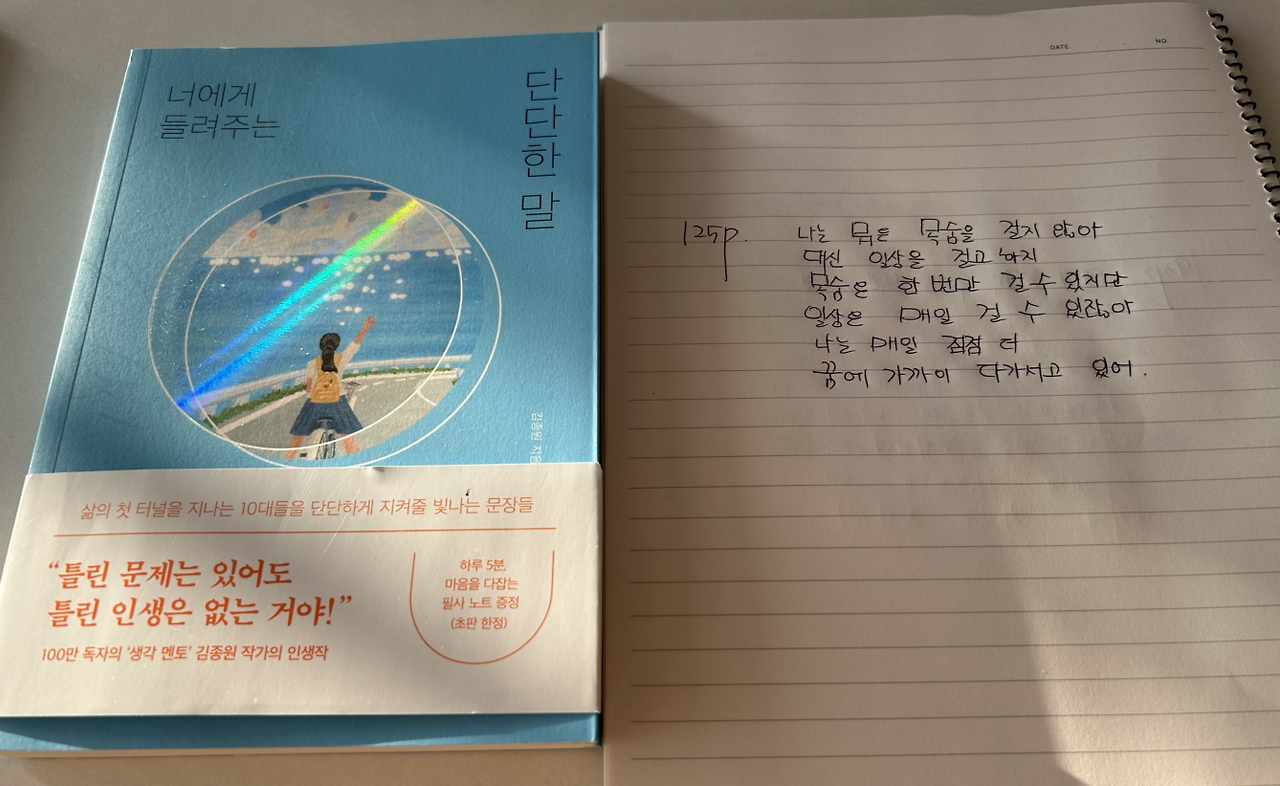 너에게
들려주는
단단한 말
김종원 지음
삶의 첫 터널을 지나는 10대들을 단단하게 지켜줄 빛나는 문장들
“틀린 문제는 있어도
틀린 인생은 없는 거야!”
100만 독자의 ‘생각 멘토’ 김종원 작가의 인생작
하루 5분,
마음을 다잡는
필사 노트 증정
(초판 한정)
DATE. . . NO.
125p. 나는 목숨을 걸지 않아
대신 일상을 걸고 하지
목숨은 한 번만 걸 수 있지만
일상은 매일 걸 수 있잖아
나는 매일 점점 더
꿈에 가까이 다가서고 있어.